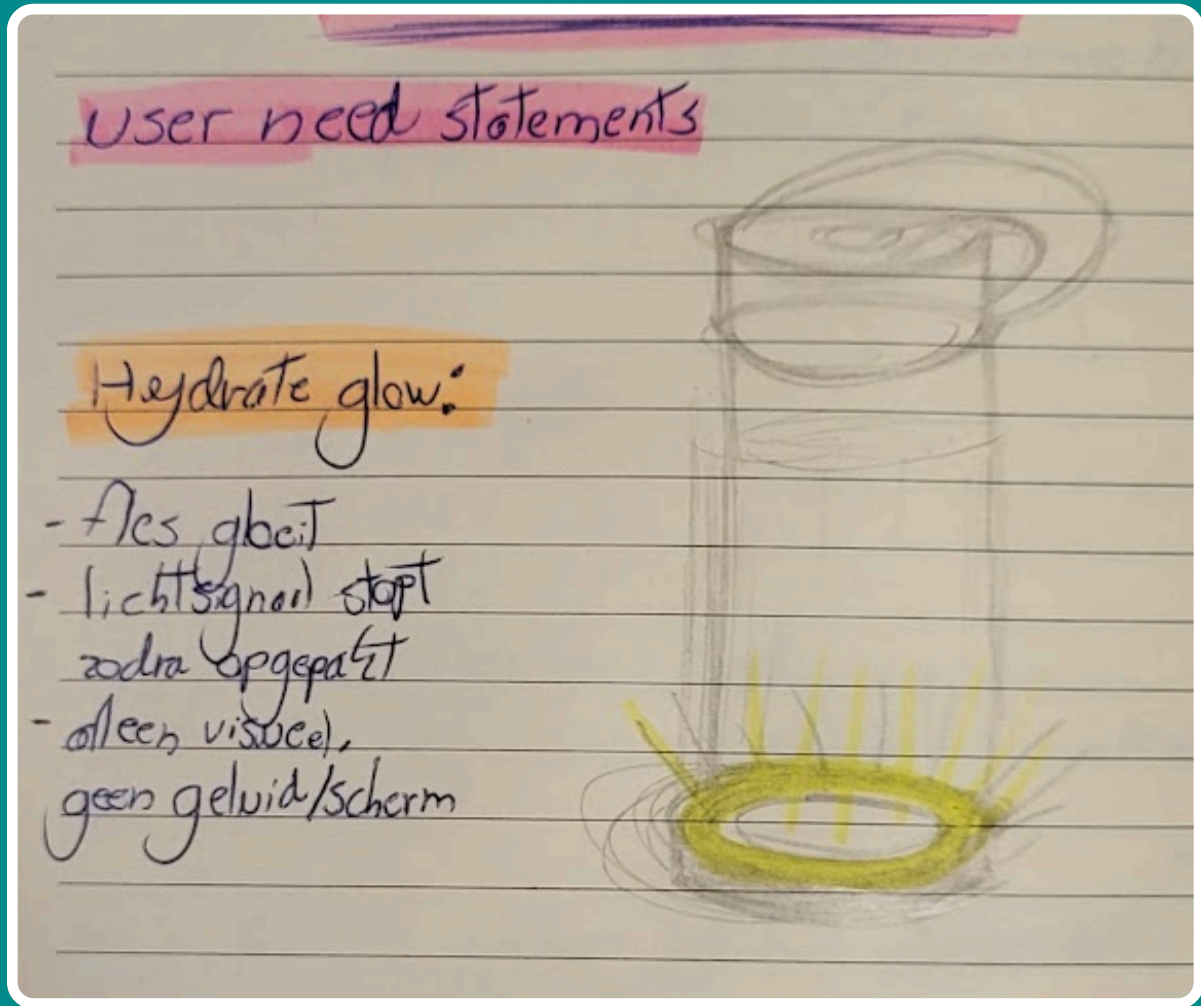 User need statements
Hydrate glow:
- fles gloeit
- lichtsignaal stopt
zodra opgepakt
- alleen visueel,
geen geluid/scherm